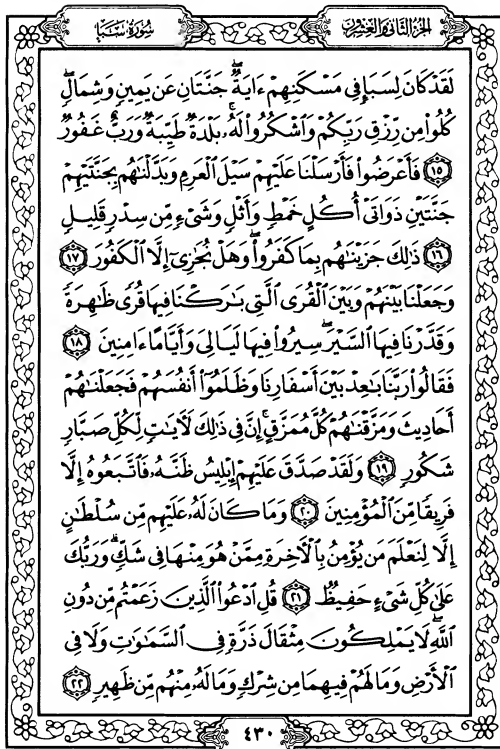 الجزء الثاني والعشرون
سورة سبإ
لَقَدْ كَانَ لِسَبَإٍ فِي مَسْكَنِهِمْ ءَايَةٌ ۖ جَنَّتَانِ عَن يَمِينٍ وَشِمَالٍ ۖ
كُلُوا۟ مِن رِّزْقِ رَبِّكُمْ وَٱشْكُرُوا۟ لَهُۥ ۚ بَلْدَةٌ طَيِّبَةٌ وَرَبٌّ غَفُورٌ
﴿١٥﴾ فَأَعْرَضُوا۟ فَأَرْسَلْنَا عَلَيْهِمْ سَيْلَ ٱلْعَرِمِ وَبَدَّلْنَٰهُم بِجَنَّتَيْهِمْ
جَنَّتَيْنِ ذَوَاتَىْ أُكُلٍ خَمْطٍ وَأَثْلٍ وَشَىْءٍ مِّن سِدْرٍ قَلِيلٍ
﴿١٦﴾ ذَٰلِكَ جَزَيْنَٰهُم بِمَا كَفَرُوا۟ ۖ وَهَلْ نُجَٰزِىٓ إِلَّا ٱلْكَفُورَ ﴿١٧﴾
وَجَعَلْنَا بَيْنَهُمْ وَبَيْنَ ٱلْقُرَى ٱلَّتِى بَٰرَكْنَا فِيهَا قُرًى ظَٰهِرَةً
وَقَدَّرْنَا فِيهَا ٱلسَّيْرَ ۖ سِيرُوا۟ فِيهَا لَيَالِىَ وَأَيَّامًا ءَامِنِينَ ﴿١٨﴾
فَقَالُوا۟ رَبَّنَا بَٰعِدْ بَيْنَ أَسْفَارِنَا وَظَلَمُوٓا۟ أَنفُسَهُمْ فَجَعَلْنَٰهُمْ
أَحَادِيثَ وَمَزَّقْنَٰهُمْ كُلَّ مُمَزَّقٍ ۚ إِنَّ فِى ذَٰلِكَ لَءَايَٰتٍ لِّكُلِّ صَبَّارٍ
شَكُورٍ ﴿١٩﴾ وَلَقَدْ صَدَّقَ عَلَيْهِمْ إِبْلِيسُ ظَنَّهُۥ فَٱتَّبَعُوهُ إِلَّا
فَرِيقًا مِّنَ ٱلْمُؤْمِنِينَ ﴿٢٠﴾ وَمَا كَانَ لَهُۥ عَلَيْهِم مِّن سُلْطَٰنٍ
إِلَّا لِنَعْلَمَ مَن يُؤْمِنُ بِٱلْءَاخِرَةِ مِمَّنْ هُوَ مِنْهَا فِى شَكٍّ ۗ وَرَبُّكَ
عَلَىٰ كُلِّ شَىْءٍ حَفِيظٌ ﴿٢١﴾ قُلِ ٱدْعُوا۟ ٱلَّذِينَ زَعَمْتُم مِّن دُونِ
ٱللَّهِ ۖ لَا يَمْلِكُونَ مِثْقَالَ ذَرَّةٍ فِى ٱلسَّمَٰوَٰتِ وَلَا فِى
ٱلْأَرْضِ وَمَا لَهُمْ فِيهِمَا مِن شِرْكٍ وَمَا لَهُۥ مِنْهُم مِّن ظَهِيرٍ ﴿٢٢﴾
٤٣٠